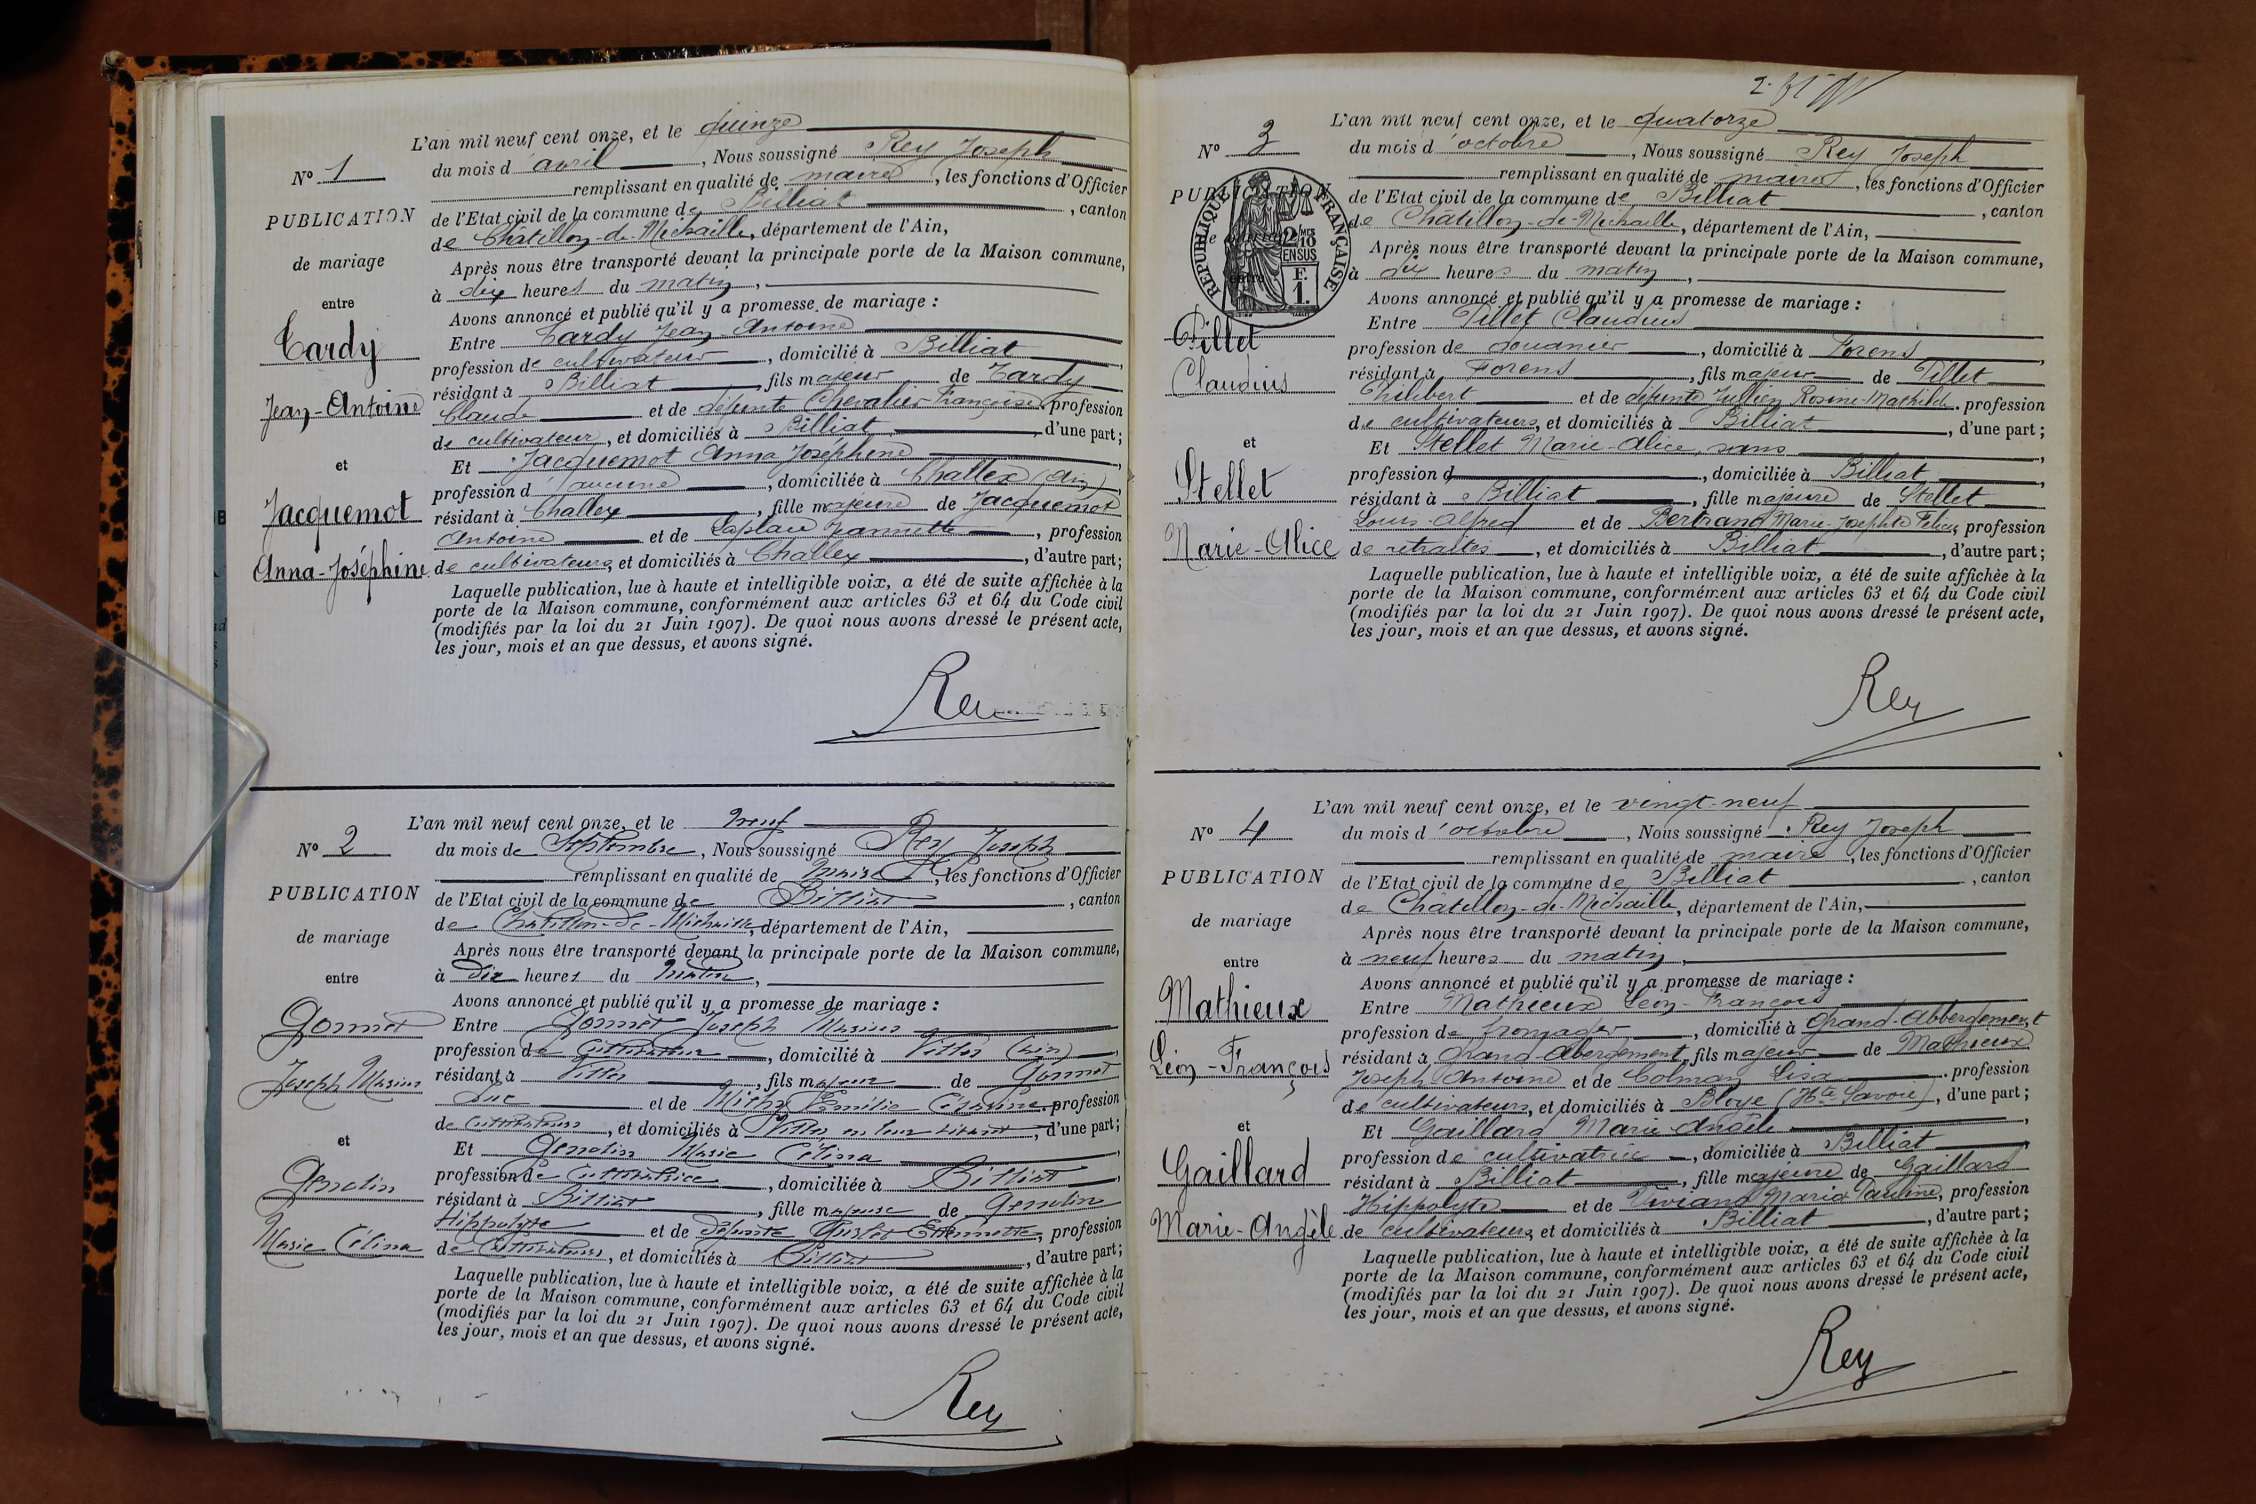 L'an mil neuf cent onze, et le quinze
N° 1
du mois d'avril, Nous soussigné Rey Joseph
remplissant en qualité de maire, les fonctions d'Officier
PUBLICATION
de l'Etat civil de la commune de Billiat, canton
de Châtillon-de-Michaille, département de l'Ain,
de mariage
Après nous être transporté devant la principale porte de la Maison commune,
à dix heures du matin,
entre
Avons annoncé et publié qu'il y a promesse de mariage :
Tardy
Entre Tardy Jean Antoine
profession de cultivateur, domicilié à Billiat
résidant à Billiat, fils majeur de Tardy
Jean-Antoine
Claude et de défunte Chevalier Françoise. profession
de cultivateur, et domiciliés à Billiat, d'une part ;
et
Et Jacquemot Anna Joséphine
profession d'aucune, domiciliée à Challex (Ain),
Jacquemot
résidant à Challex, fille majeure de Jacquemot
Antoine et de Laplace Jeannette, profession
Anna-Joséphine
de cultivateurs, et domiciliés à Challex, d'autre part ;
Laquelle publication, lue à haute et intelligible voix, a été de suite affichée à la
porte de la Maison commune, conformément aux articles 63 et 64 du Code civil
(modifiés par la loi du 21 Juin 1907). De quoi nous avons dressé le présent acte,
les jour, mois et an que dessus, et avons signé.
Rey
L'an mil neuf cent onze, et le neuf
N° 2
du mois de Septembre, Nous soussigné Rey Joseph
remplissant en qualité de Maire, les fonctions d'Officier
PUBLICATION
de l'Etat civil de la commune de Billiat, canton
de Châtillon-de-Michaille, département de l'Ain,
de mariage
Après nous être transporté devant la principale porte de la Maison commune,
entre
à dix heures du matin,
Avons annoncé et publié qu'il y a promesse de mariage :
Gonnet
Entre Gonnet Joseph Marius
profession de cultivateur, domicilié à Villes (Ain)
Joseph Marius
résidant à Villes, fils majeur de Gonnet
Luc et de Emélie. profession
de cultivateurs, et domiciliés à Villes, d'une part ;
et
Et Genolin Marie Célina
Genolin
profession de cultivatrice, domiciliée à Billiat
résidant à Billiat, fille majeure de Genolin
Marie Célina
Hippolyte et de défunte Etiennette, profession
de cultivateurs, et domiciliés à Billiat, d'autre part ;
Laquelle publication, lue à haute et intelligible voix, a été de suite affichée à la
porte de la Maison commune, conformément aux articles 63 et 64 du Code civil
(modifiés par la loi du 21 Juin 1907). De quoi nous avons dressé le présent acte,
les jour, mois et an que dessus, et avons signé.
Rey
L'an mil neuf cent onze, et le quatorze
N° 3
du mois d'octobre, Nous soussigné Rey Joseph
remplissant en qualité de maire, les fonctions d'Officier
PUBLICATION
de l'Etat civil de la commune de Billiat, canton
de Châtillon-de-Michaille, département de l'Ain,
RÉPUBLIQUE FRANÇAISE
2/10 MES
EN SUS
F.
1.
de mariage
Après nous être transporté devant la principale porte de la Maison commune,
à dix heures du matin,
entre
Avons annoncé et publié qu'il y a promesse de mariage :
Pillet
Entre Pillet Claudius
profession de douanier, domicilié à Forens
Claudius
résidant à Forens, fils majeur de Pillet
Philibert et de défunte Jullien Rosine-Mathilde. profession
de cultivateurs, et domiciliés à Billiat, d'une part ;
et
Et Stellet Marie-Alice, sans
Stellet
profession d, domiciliée à Billiat
résidant à Billiat, fille majeure de Stellet
Louis-Alfred et de Bertrand Marie-Josephte, profession
Marie-Alice
de retraités, et domiciliés à Billiat, d'autre part ;
Laquelle publication, lue à haute et intelligible voix, a été de suite affichée à la
porte de la Maison commune, conformément aux articles 63 et 64 du Code civil
(modifiés par la loi du 21 Juin 1907). De quoi nous avons dressé le présent acte,
les jour, mois et an que dessus, et avons signé.
Rey
L'an mil neuf cent onze, et le vingt-neuf
N° 4
du mois d'octobre, Nous soussigné Rey Joseph
remplissant en qualité de maire, les fonctions d'Officier
PUBLICATION
de l'Etat civil de la commune de Billiat, canton
de Châtillon-de-Michaille, département de l'Ain,
de mariage
Après nous être transporté devant la principale porte de la Maison commune,
entre
à neuf heures du matin,
Avons annoncé et publié qu'il y a promesse de mariage :
Mathieux
Entre Mathieux Léon-François
profession de fromager, domicilié à Grand-Abbergement
Léon-François
résidant à Grand-Abergement, fils majeur de Mathieux
Joseph Antoine et de Colman Lisa. profession
de cultivateurs, et domiciliés à Bloye (Hte Savoie), d'une part ;
et
Et Gaillard Marie-Angèle
Gaillard
profession de cultivatrice, domiciliée à Billiat
résidant à Billiat, fille majeure de Gaillard
Hippolyte et de Viviand Maria Pauline, profession
Marie-Angèle
de cultivateurs, et domiciliés à Billiat, d'autre part ;
Laquelle publication, lue à haute et intelligible voix, a été de suite affichée à la
porte de la Maison commune, conformément aux articles 63 et 64 du Code civil
(modifiés par la loi du 21 Juin 1907). De quoi nous avons dressé le présent acte,
les jour, mois et an que dessus, et avons signé.
Rey